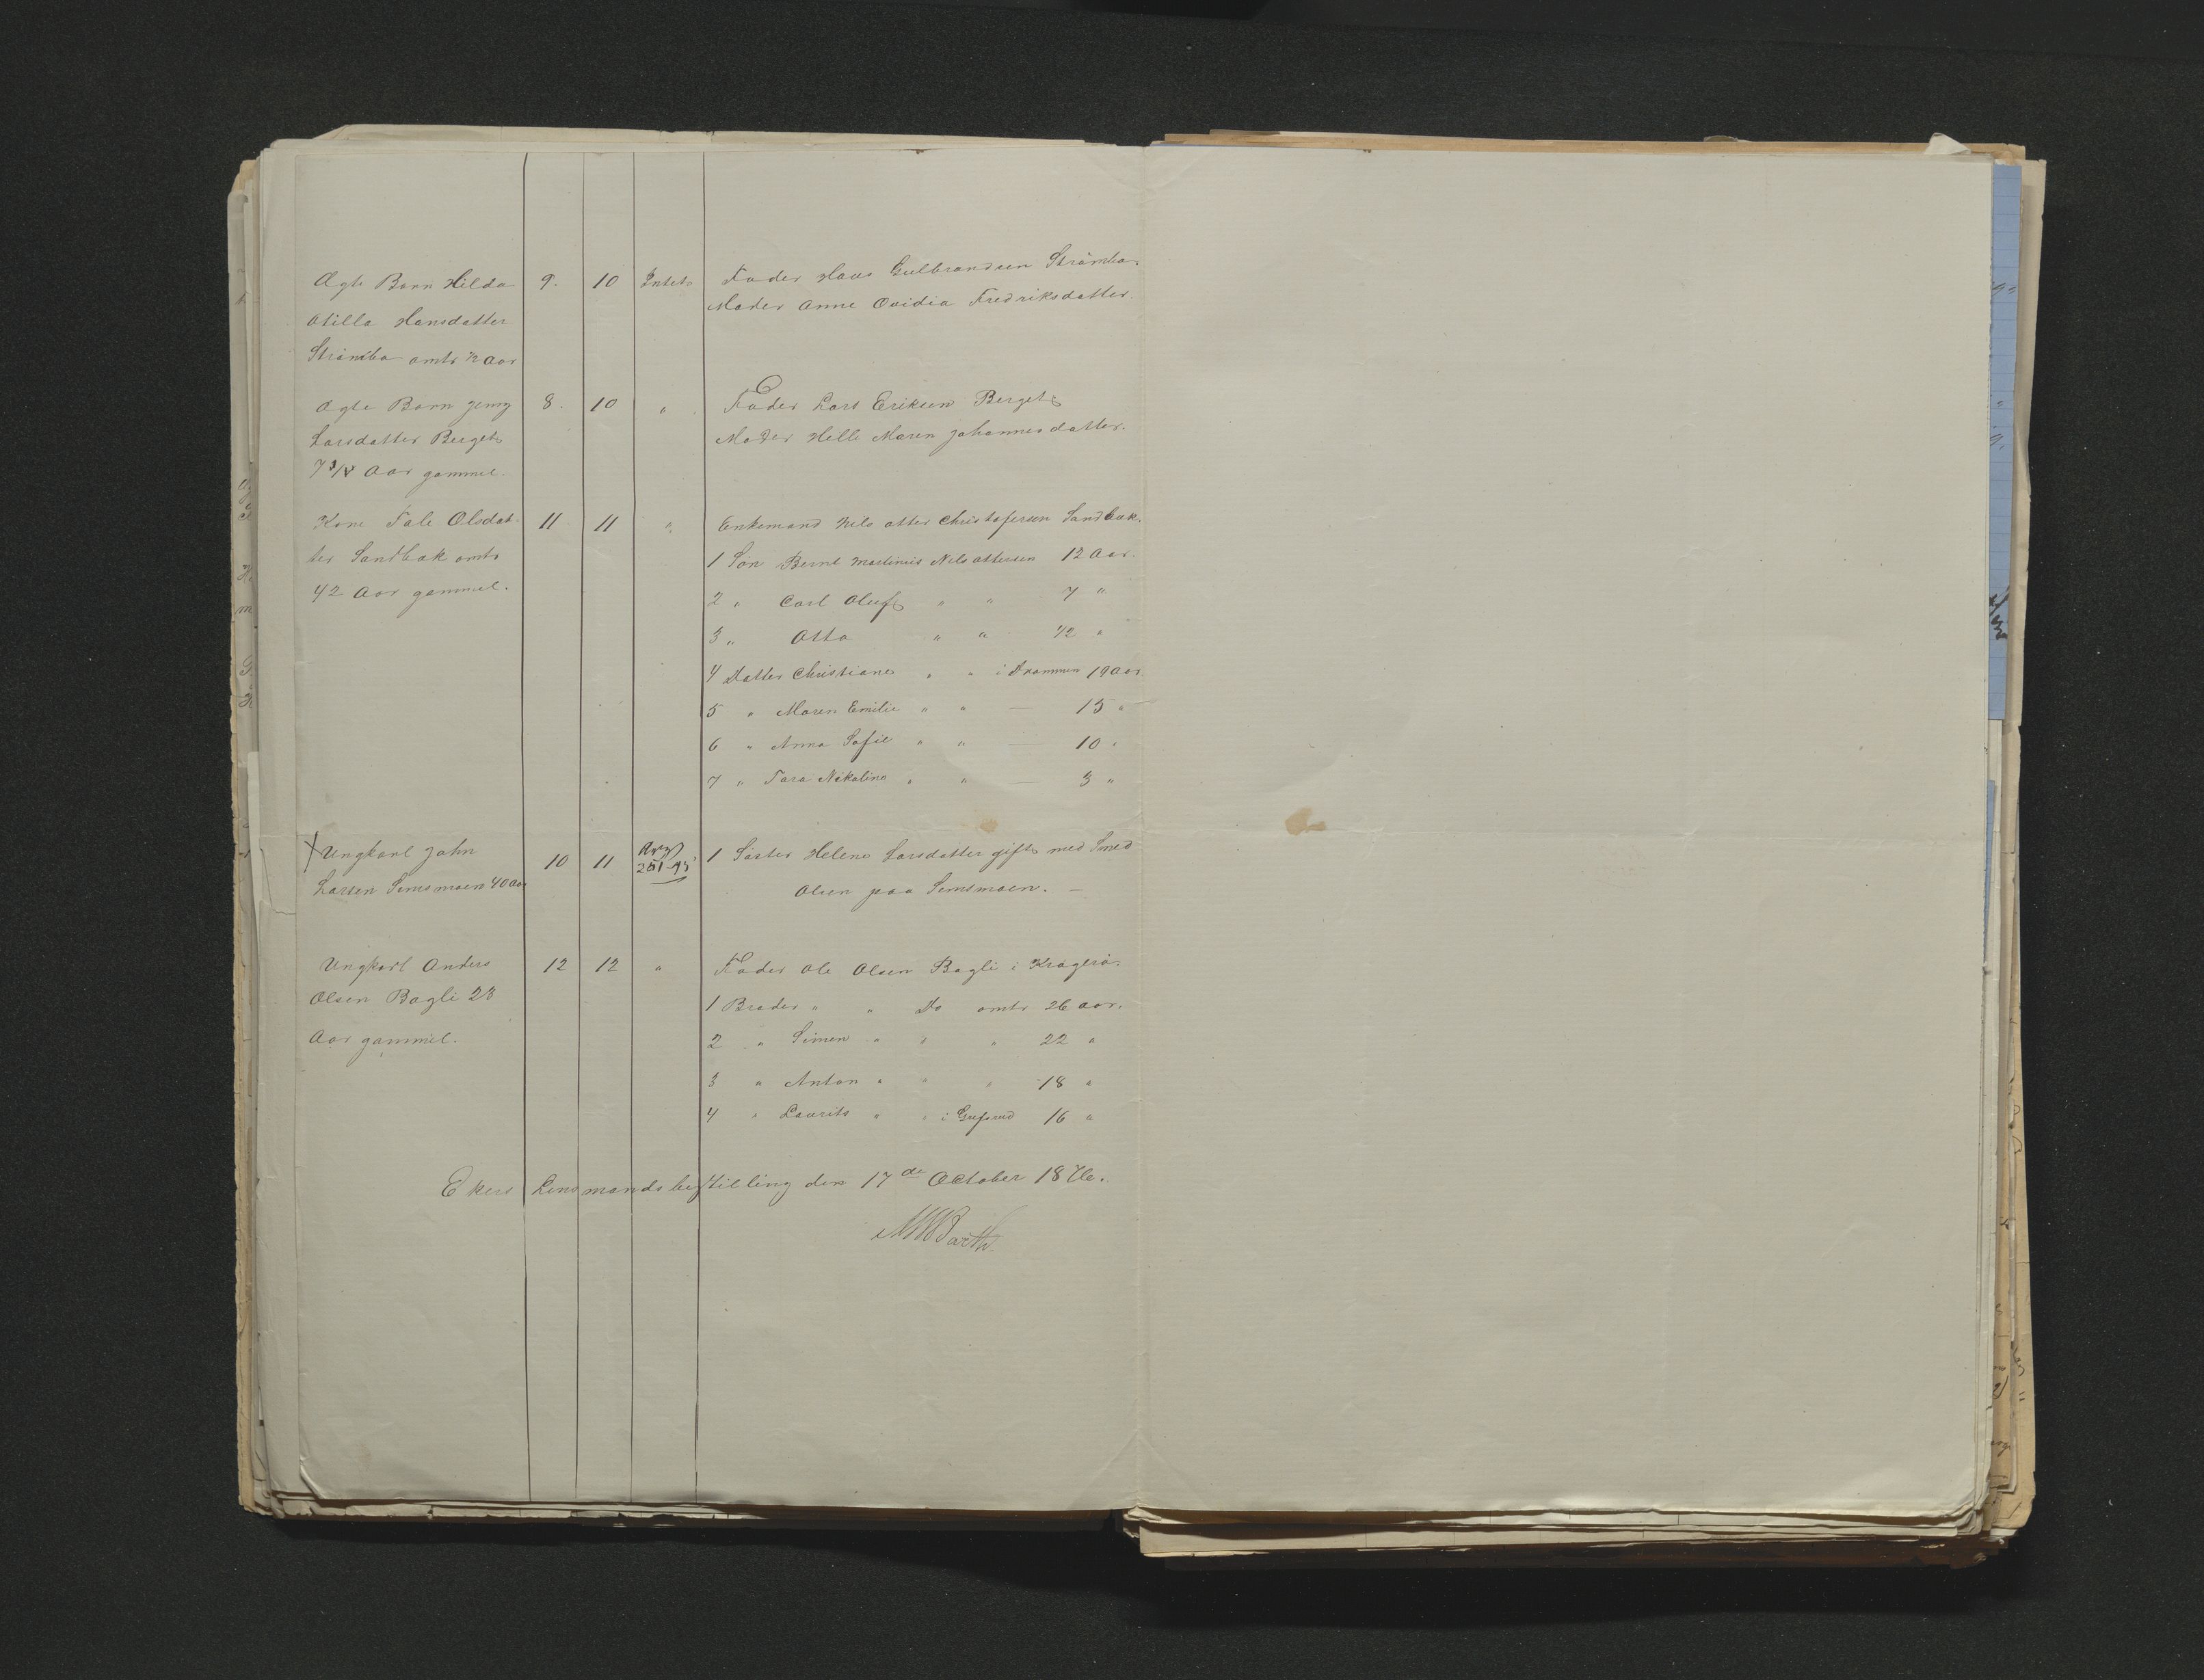 Ægte Barn Hilda 9. 10 Intet Fader Hans Gulbrandsen Strömbo.
Otilla Hansdatter Moder Anne Ovidia Fredriksdatter.
Strömbo omtr ½ Aar
Ægte Barn Jenny 8. 10 " Fader Lars Eriksen Berget
Larsdatter Berget Moder Helle Maren Johannesdatter.
7 3/4 Aar gammel.
Kone Tale Olsdat- 11 11 " Enkemand Nils Otter Christofersen Sandbak.
ter Sandbak omtr 1 Søn Bernt Martinius Nils Ottersen 12 Aar.
42 Aar gammel. 2 " Carl Oluf " " 7 "
3 " Otto " " ½ "
4 Datter Christiane " " i Drammen 19 Aar
5 " Maren Emilie " " — 15 "
6 " Anna Sofie " " — 10 "
7 " Tara Nikoline " " — 3 "
Ungkarl John 10 11 1 Söster Helene Larsdatter gift med Smed
Larsen Semsmoen 40 Aar Olsen paa Semsmoen. —
Ungkarl Anders 12 12 " Fader Ole Olsen Bagli i Kragerö.
Olsen Bagli 23 1 Broder " " Do omtr 26 aar.
Aar gammel. 2 " Simen " " " 22 "
3 " Anton " " " 18 "
4 " Laurits " " i 16 "
Ekers Lensmandsbestilling den 17de October 1876.
MWBarth.